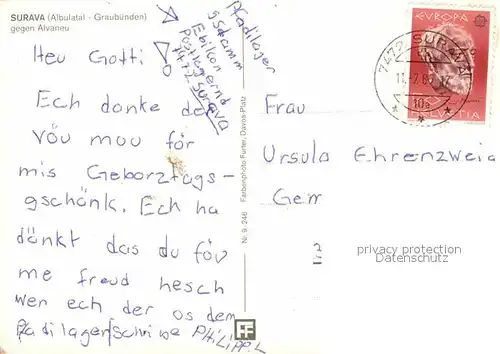 SURAVA (Albulatal - Graubünden)
gegen Alvaneu
Heu Gotti!
Ech danke der
vöu mou för
mis Geborztags-
gschänk. Ech ha
dänkt das du föv
me freud hesch
wen ech der os dem
Pfadilager schriwe PHiLiPP.L
Pfadilager
gStamm
Ebikon
Postlagernd
7472 Surava
Nr. 9 246
Farbenphoto Furter, Davos-Platz
EUROPA
HELVETIA
7472 SURAVA
Frau
Ursula Ehrenzweig
privacy protection
Datenschutz